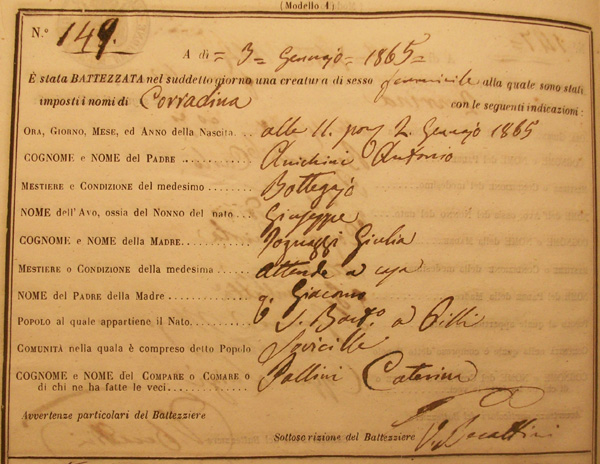 (Modello 1)
N.º 149.
A dì = 3 Gennajo = 1865 =
È stata BATTEZZATA nel suddetto giorno una creatura di sesso femminile alla quale sono stati
imposti i nomi di Corradina con le seguenti indicazioni:
Ora, Giorno, Mese, ed Anno della Nascita. alle 11. pom 2. Gennajo 1865
COGNOME e NOME del PADRE Anichini Antonio
Mestiere e Condizione del medesimo Bottegajo
NOME dell'Avo, ossia del Nonno del nato Giuseppe
COGNOME e NOME della MADRE Giulia
Mestiere o Condizione della medesima attende a casa
NOME del Padre della Madre q. Giacomo
Popolo al quale appartiene il Nato. S. Barto a Pilli
Comunità nella quale è compreso detto Popolo Sovicille
COGNOME e NOME del Compare o Comare o Pallini Caterina
di chi ne ha fatte le veci
Avvertenze particolari del Battezziere
Sottoscrizione del Battezziere